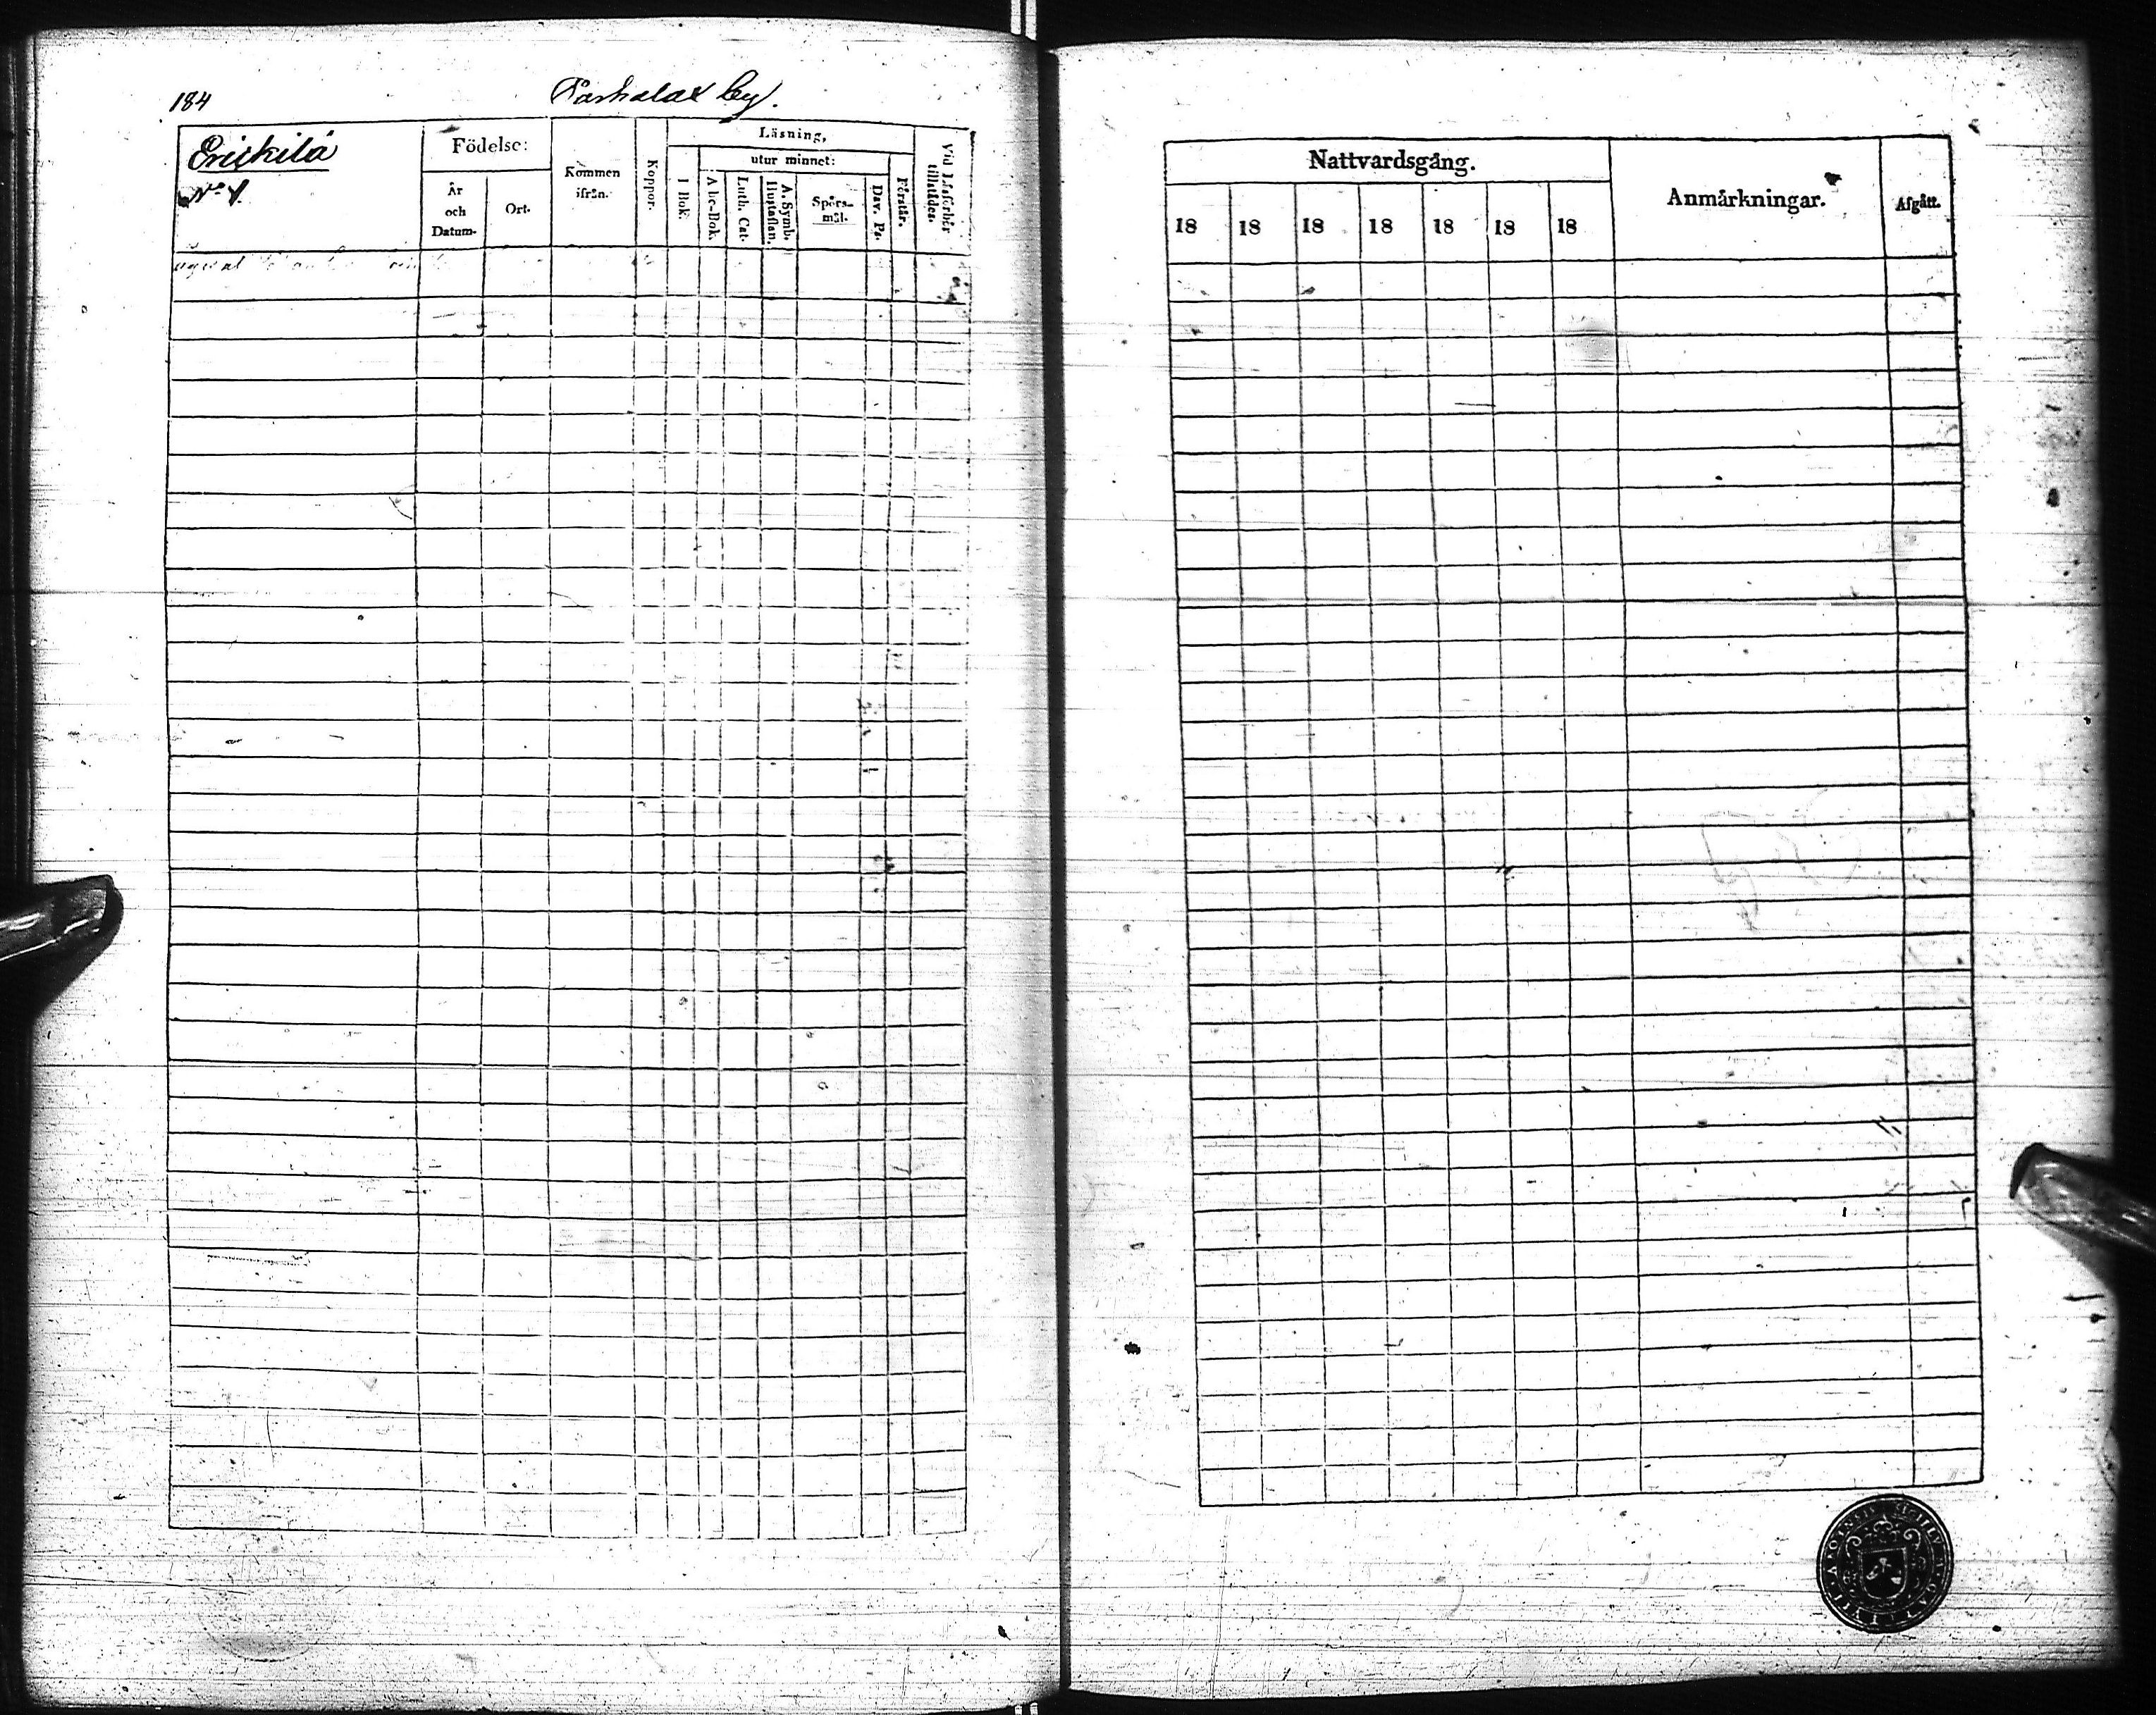 184
Parkalax by.
Erickilä
No 1.
Födelse:
År och Datum.
Ort.
Kommen ifrån.
Koppor.
Läsning,
utur minnet:
I Bok.
Abc-Bok.
Luth. Cat.
A. Symb. Hustaflan.
Spörs-mål.
Dav. Ps.
Förstår.
Vid Läsförhör tillstädes.
Nattvardsgång.
18 18 18 18 18 18 18
Anmärkningar.
Afgått.